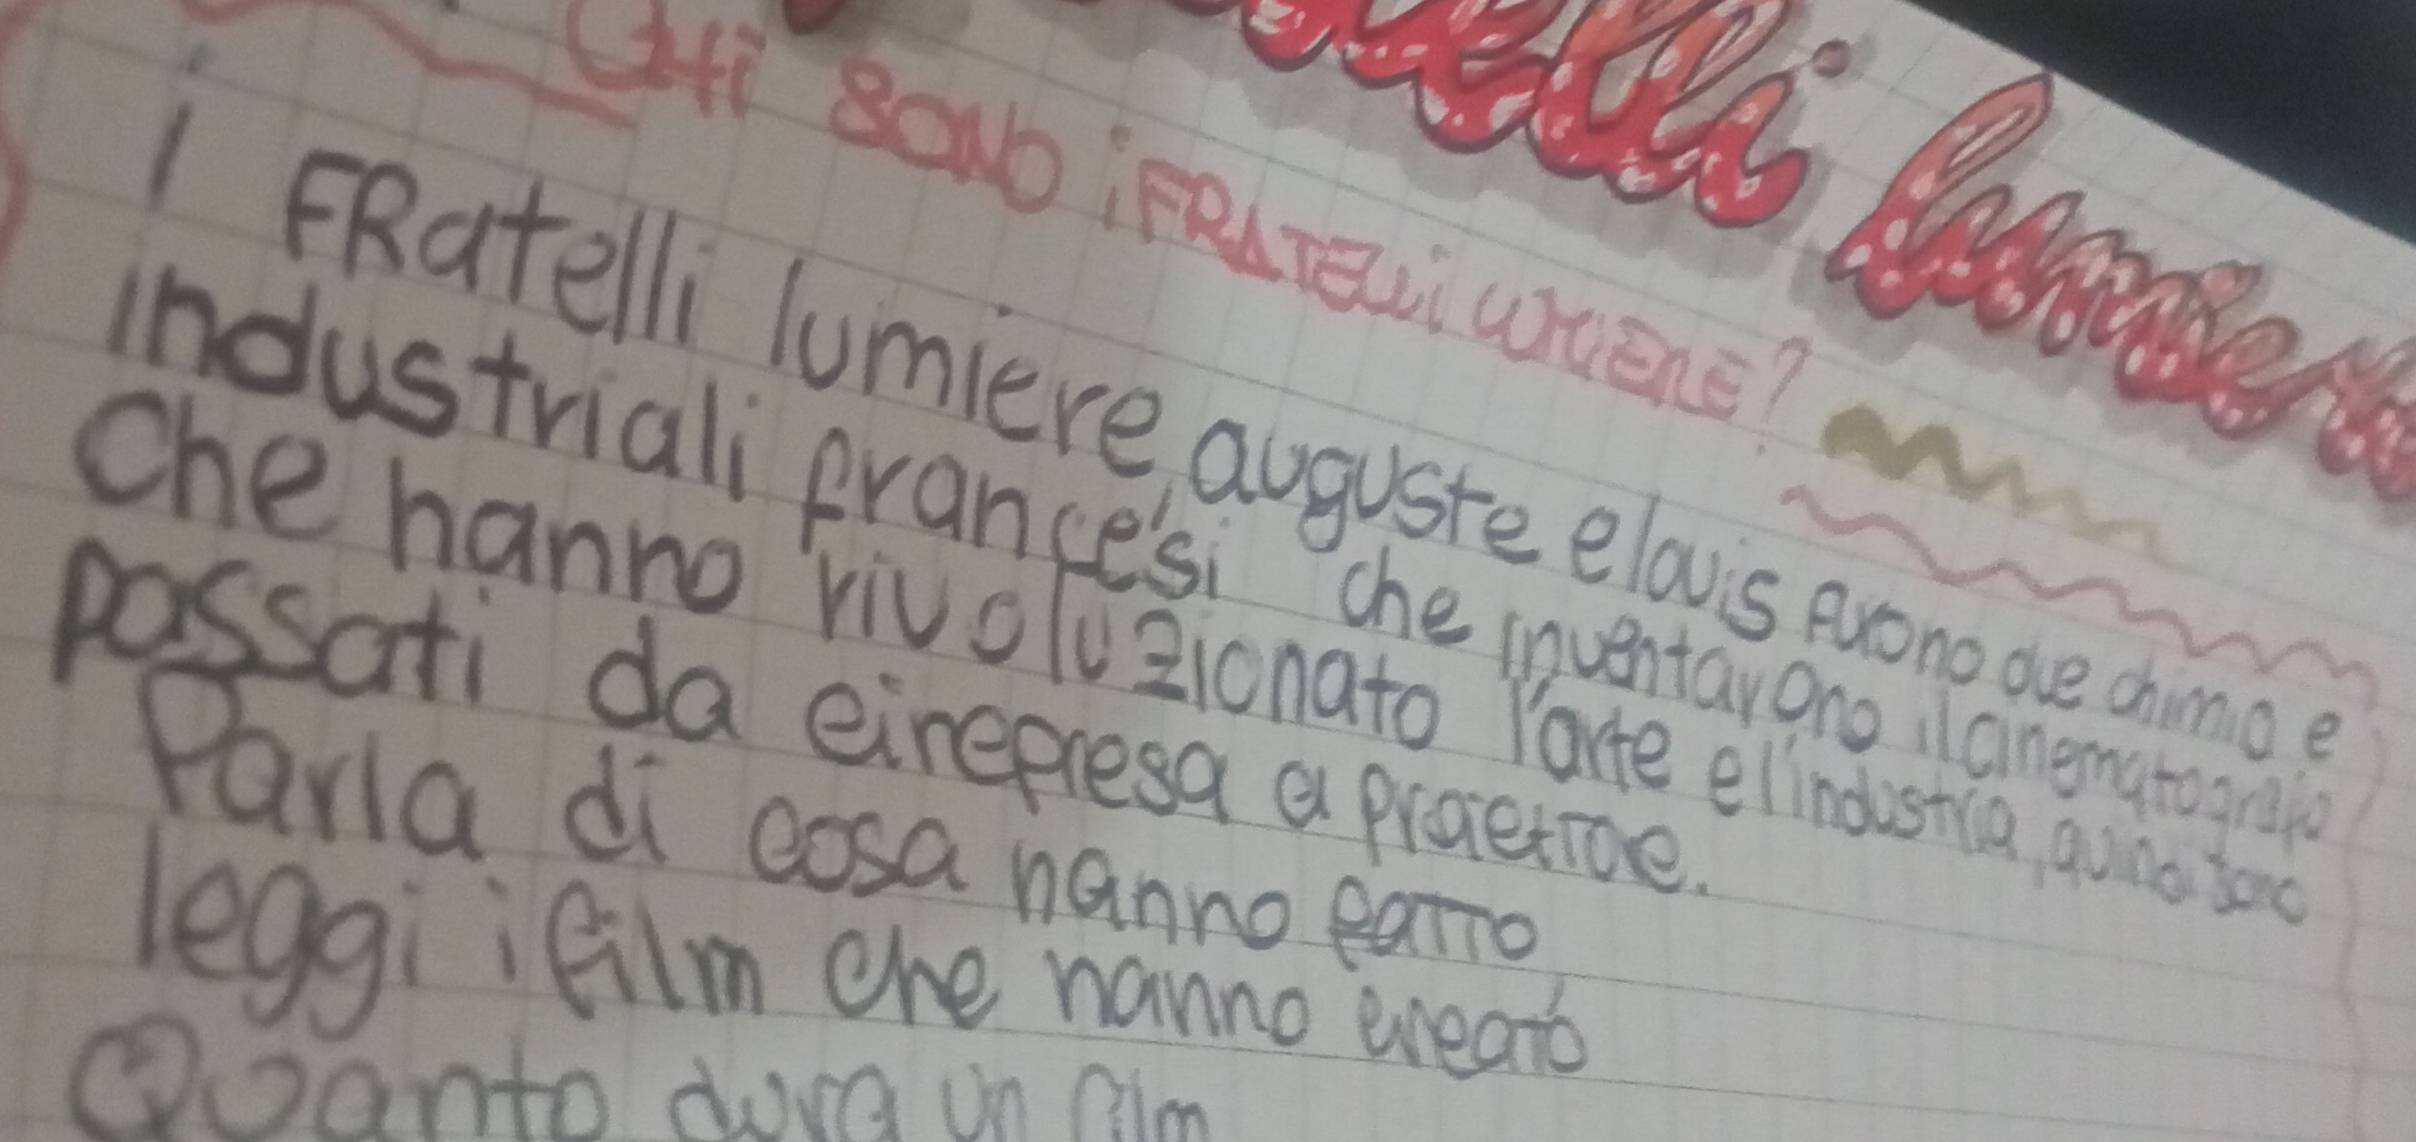 Fratelli lumiere
CHi SONO i FRATELLi LUMIERE?
I FRatelli lumiere, auguste e louis Furono due chimio e
industriali francesi che inventarono il cinematografo
Che hanno rivoluzionato l'arte e l'industria, quindi sono
passati da
Parla di cosa hanno fatto
leggi i film che hanno creato
Quanto dura un film